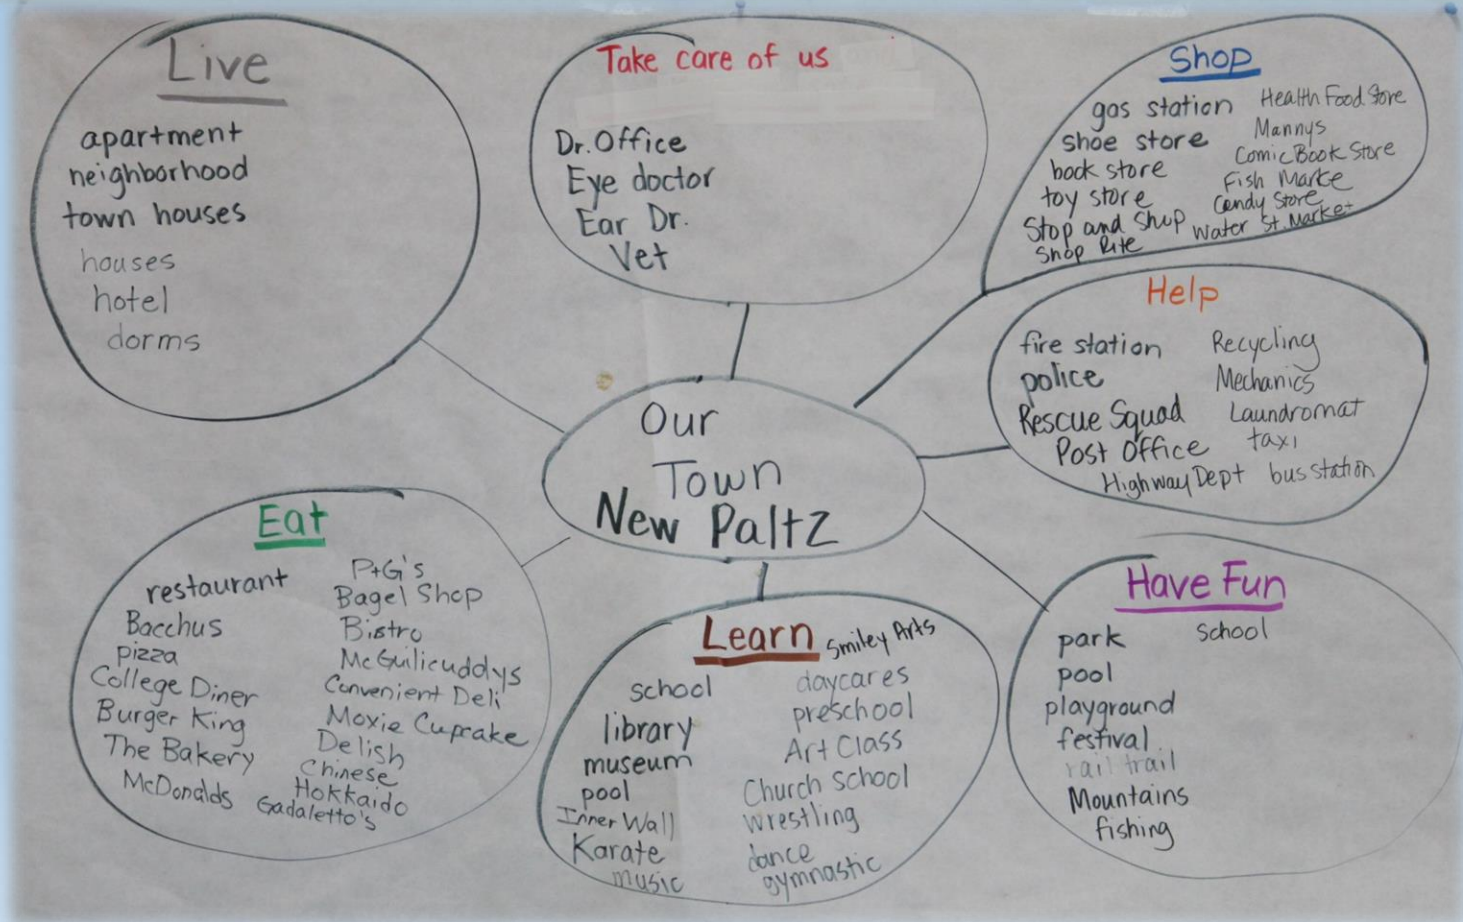 Live
apartment
neighborhood
town houses
houses
hotel
dorms
Take care of us
Dr. Office
Eye doctor
Ear Dr.
Vet
Shop
gas station
shoe store
book store
toy store
Stop and Shop
Shop Rite
Health Food Store
Mannys
Comic Book Store
Fish Marke
Candy Store
Water St. Market
Help
fire station
police
Rescue Squad
Post Office
Highway Dept
Recycling
Mechanics
Laundromat
taxi
bus station
Our
Town
New Paltz
Eat
restaurant
Bacchus
pizza
College Diner
Burger King
The Bakery
McDonalds
P+G's
Bagel Shop
Bistro
McGuilicuddys
Convenient Deli
Moxie Cupcake
Delish
Chinese
Hokkaido
Gadaletto's
Learn
Smiley Arts
school
library
museum
pool
Inner Wall
Karate
music
daycares
preschool
Art Class
Church School
wrestling
dance
gymnastic
Have Fun
park
pool
playground
festival
rail trail
Mountains
fishing
school